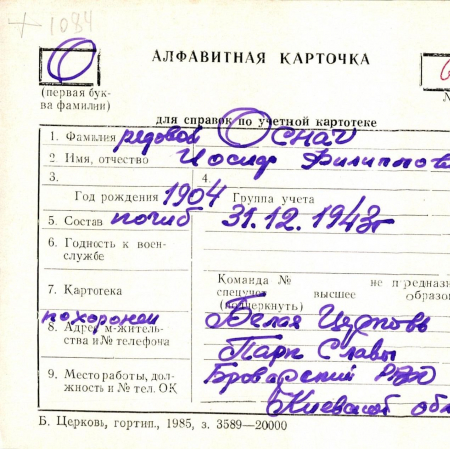 + 1084
АЛФАВИТНАЯ КАРТОЧКА
О
(первая бук-
ва фамилии)
№
для справок по учетной картотеке
1. Фамилия рядовой Оснач
2. Имя, отчество Иосиф Филиппов
3.
4.
Год рождения 1904 Группа учета
5. Состав погиб 31.12.1943г
6. Годность к воен-
службе
7. Картотека
Команда № не предназн
спецучет высшее образо
(подчеркнуть)
похоронен Белая Церковь
8. Адрес м-житель-
ства и № телефона
Парк Славы
9. Место работы, дол-
жность и № тел. ОК
Броварский РВК
Киевской обл
Б. Церковь, гортип., 1985, з. 3589—20000